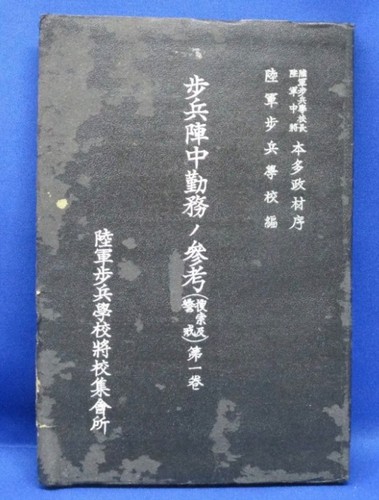 陸軍步兵學校長
陸軍中將 本多政材序
陸軍步兵學校編
步兵陣中勤務ノ參考(搜索及警戒)第一卷
陸軍步兵學校將校集會所